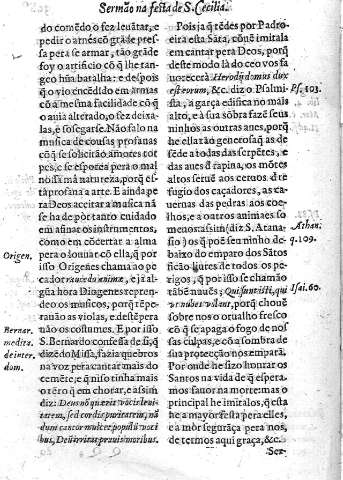 Sermão na festa de S. Cecilia.
do começo o fez leuãtar, e
pedir o arnés cõ grãde pres-
sa pera se armar, tão grãde
foy o artificio cõ q̃ lhe tan-
geo hũa batalha: e despois
q̃ o vio encẽdido em armas
cõ a mesma facilidade cõ q̃
o auia alterado, o fez deixa-
las, e sosegarse. Não falo na
musica de cousas profanas
cõ q̃ se solicitão amores tor-
pes, e se espoẽta pera o mal
nossa má natureza, porq̃ es-
ta profana a arte. E ainda pe-
ra Deos aceitar a musica nã
se ha de por tanto cuidado
em afinar os instrumentos,
como em cõcertar a alma
pera o louuar cõ ella, q̃ por
isso Origenes chama ao pe-
cador rauco da anima, e já al-
gũa hora Diogenes reprẽn-
deo os musicos, porq̃ tẽpe-
rauão as violas, e destẽpera
uão os costumes. E por isso
S. Bernardo confessa de si, q̃
dizẽdo Missa, fazia quebros
na voz pera cantar mais do
cemẽte, e q̃ nisso tinha mais
o tẽto q̃ em chorar, e assim
diz: Deus nõ quærit vocis leui-
tatem, sed cordis puritatem, nã
dum cantor mulcet populũ voci
bus, Deũ irritat prauis moribus.
Origen.
Bernar.
medita.
de inter.
dom.
Pois ja q̃ tẽdes por Padro-
eira esta Sãta, cõuẽ imitala
em cantar pera Deos, porq̃
deste modo lá do ceo vos fa
uorecerá. Herodij domus dux
est eorum, &c. diz o Psalmi-
sta, a garça edifica no mais
alto, e á sua sõbra fazẽ seus
ninhos as outras aues, porq̃
he ella tão generosa q̃ as de-
fẽde a todas das serpẽtes, e
das aues d̃ rapina, os mõtes
altos seruẽ aos ceruos d̃ re
fugio dos caçadores, as ca-
uernas das pedras aos coe-
lhos, e a outros animaes so
menos: assim (diz S. Atana-
sio) os q̃ poẽ seu ninho de-
baixo do emparo dos Sãtos
ficão liures de todos os pe-
rigos, q̃ por isso se chamão
tãbẽ nauẽs; Qui sunt isti, qui
vt nubes volant, porq̃ chouẽ
sobre nos o orualho fresco
cõ q̃ se apaga o fogo de nos
sas culpas, e cõ a sombra de
sua protecção nos emparã.
Por onde he sizo honrar os
Santos na vida de q̃ espera-
mos fauor na morte: mas o
principal he imitalos, q̃ esta
he a mayor festa pera elles,
e a môr segurãça pera nos,
de termos aqui graça, &c.
Ps. 103.
Athan.
q. 109.
Isai. 60.
Ser-